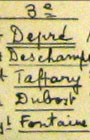 3e
Depré
Deschamp
t Taffary
Dubost
gt Fontaine